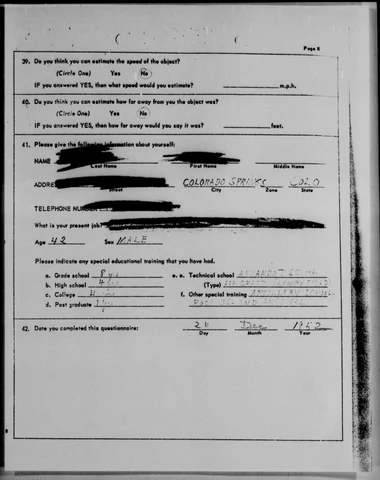 Page 8
39. Do you think you can estimate the speed of the object?
(Circle One) Yes No
IF you answered YES, then what speed would you estimate? m.p.h.
40. Do you think you can estimate how far away from you the object was?
(Circle One) Yes No
IF you answered YES, then how far away would you say it was? feet.
41. Please give the following information about yourself:
NAME
Last Name First Name Middle Name
ADDRESS COLORADO SPRINGS COLO
Street City Zone State
TELEPHONE NUMBER
What is your present job?
Age 42 Sex MALE
Please indicate any special educational training that you have had.
a. Grade school 8 yrs e. Technical school
b. High school 4 yrs (Type)
c. College 4 f. Other special training
d. Post graduate
42. Date you completed this questionnaire: 1952
Day Month Year